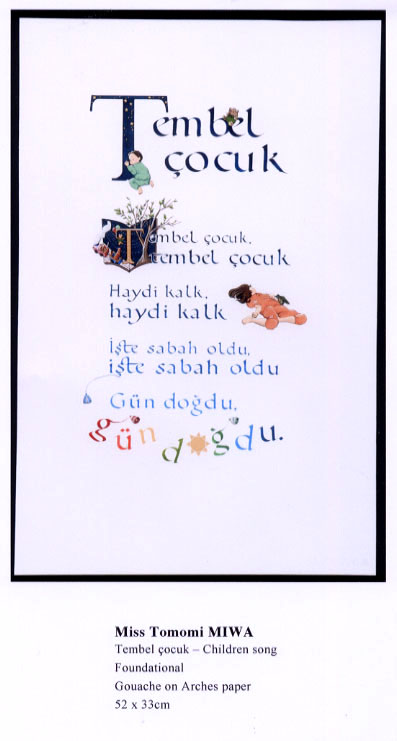 Tembel
çocuk
Tembel çocuk,
tembel çocuk
Haydi kalk,
haydi kalk
İşte sabah oldu,
işte sabah oldu
Gün doğdu,
gün doğdu.
Miss Tomomi MIWA
Tembel çocuk – Children song
Foundational
Gouache on Arches paper
52 x 33cm